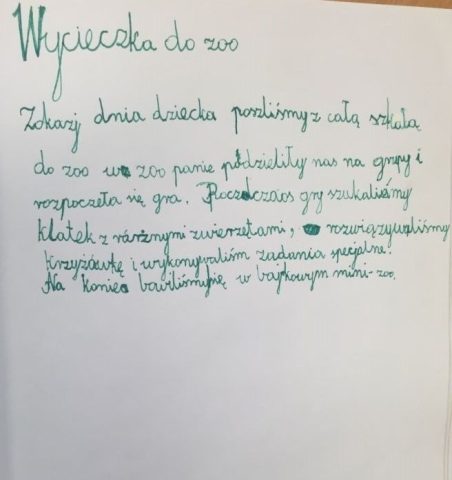 Wycieczka do zoo
Zokazj dnia dziecka poszliśmy z całą szkołą
do zoo w zoo panie podzieliły nas na grupy i
rozpoczeła się gra. Poczdczas gry szukaliśmy
klatek z różnymi zwierzętami, rozwiązywaliśmy
krzyżówkę i wykonywaliśm zadania specjalne.
Na koniec bawiliśmysię w bajkowym mini-zoo.